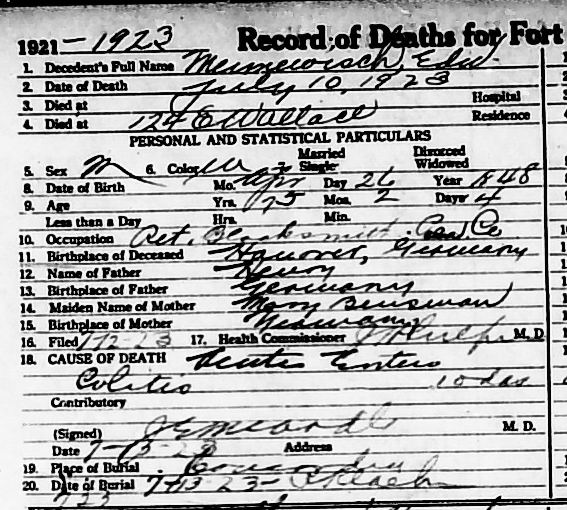 1921-1923 Record of Deaths for Fort
1. Decedent's Full Name Meinewisch, Edw.
2. Date of Death July 10, 1923
3. Died at Hospital
4. Died at 124 E Wallace Residence
PERSONAL AND STATISTICAL PARTICULARS
Married Divorced
5. Sex M 6. Color W 7. Single Widowed
8. Date of Birth Mo. Apr Day 26 Year 1848
9. Age Yrs. 75 Mos. 2 Days 4
Less than a Day Hrs. Min.
10. Occupation Ret. Blacksmith. Co
11. Birthplace of Deceased Hanover, Germany
12. Name of Father Henry
13. Birthplace of Father Germany
14. Maiden Name of Mother Mary
15. Birthplace of Mother Germany
16. Filed 23 17. Health Commissioner M. D.
18. CAUSE OF DEATH Acute Entero
Colitis 10 das
Contributory
(Signed) M. D.
Date 7-13-23 Address
19. Place of Burial
20. Date of Burial 7-13-23-
723